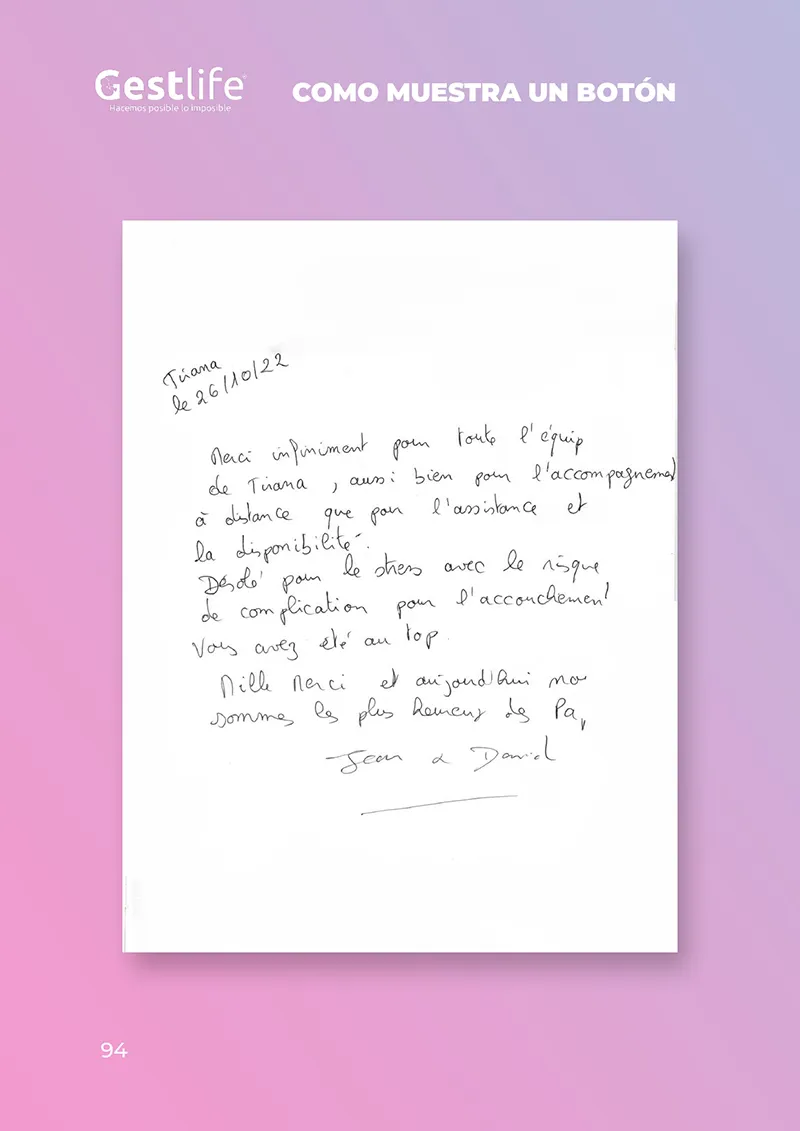 Gestlife
Hacemos posible lo imposible
COMO MUESTRA UN BOTÓN
Tirana
le 26/10/22
Merci infiniment pour toute l'équip
de Tirana, aussi bien pour l'accompagnement
à distance que pour l'assistance et
la disponibilité.
Désolé pour le stress avec le risque
de complication pour l'accouchement
Vous avez été au top.
Mille Merci et aujourd'hui nou
sommes les plus heureux des Pap
Jean & David
94